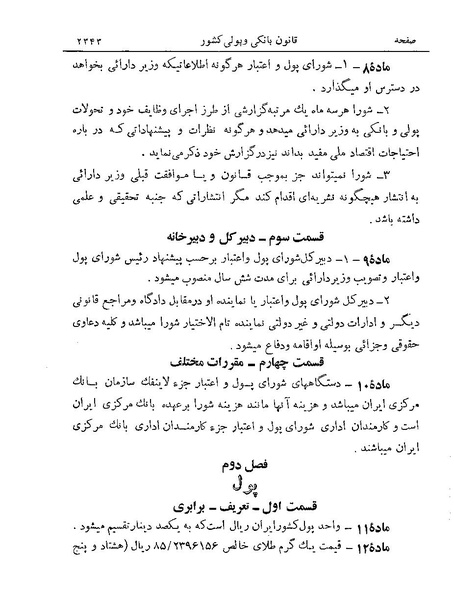 صفحه قانون بانکی و پولی کشور ۲۳۴۳
ماده۸ـ ۱ـ شورای پول و اعتبار هرگونه اطلاعاتیکه وزیر دارائی بخواهد
در دسترس او میگذارد .
۲ـ شورا هرسه ماه یك مرتبه‌گزارشی از طرز اجرای وظایف خود و تحولات
پولی و بانکی به وزیر دارائی میدهد و هرگونه نظرات و پیشنهاداتی که در باره
احتیاجات اقتصاد ملی مفید بداند نیز درگزارش خود ذکر می‌نماید .
۳ـ شورا نمیتواند جز بموجب قانون و یا موافقت قبلی وزیر دارائی
به انتشار هیچگونه نشریه‌ای اقدام کند مگر انتشاراتی که جنبه تحقیقی و علمی
داشته باشد .
قسمت سوم ـ دبیرکل و دبیرخانه
ماده۹ ـ ۱ـ دبیرکل‌شورای پول واعتبار برحسب پیشنهاد رئیس شورای پول
واعتبار وتصویب وزیردارائی برای مدت شش سال منصوب میشود .
۲ـ دبیرکل شورای پول واعتبار یا نماینده او درمقابل دادگاه ومراجع قانونی
دیگر و ادارات دولتی و غیر دولتی نماینده تام الاختیار شورا میباشد و کلیه دعاوی
حقوقی وجزائی بوسیله اواقامه ودفاع میشود .
قسمت چهارم ـ مقررات مختلف
ماده۱۰ ـ دستگاههای شورای پول و اعتبار جزء لاینفك سازمان بانك
مرکزی ایران میباشد و هزینه آنها مانند هزینه شورا برعهده بانك مرکزی ایران
است و کارمندان اداری شورای پول و اعتبار جزء کارمندان اداری بانك مرکزی
ایران میباشند .
فصل دوم
پول
قسمت اول ـ تعریف ـ برابری
ماده۱۱ ـ واحد پول‌کشورایران ریال است‌که به یکصد دینارتقسیم میشود .
ماده۱۲ ـ قیمت یك گرم طلای خالص ۸۵/۲۳۹۶۱۵۶ ریال (هشتاد و پنج